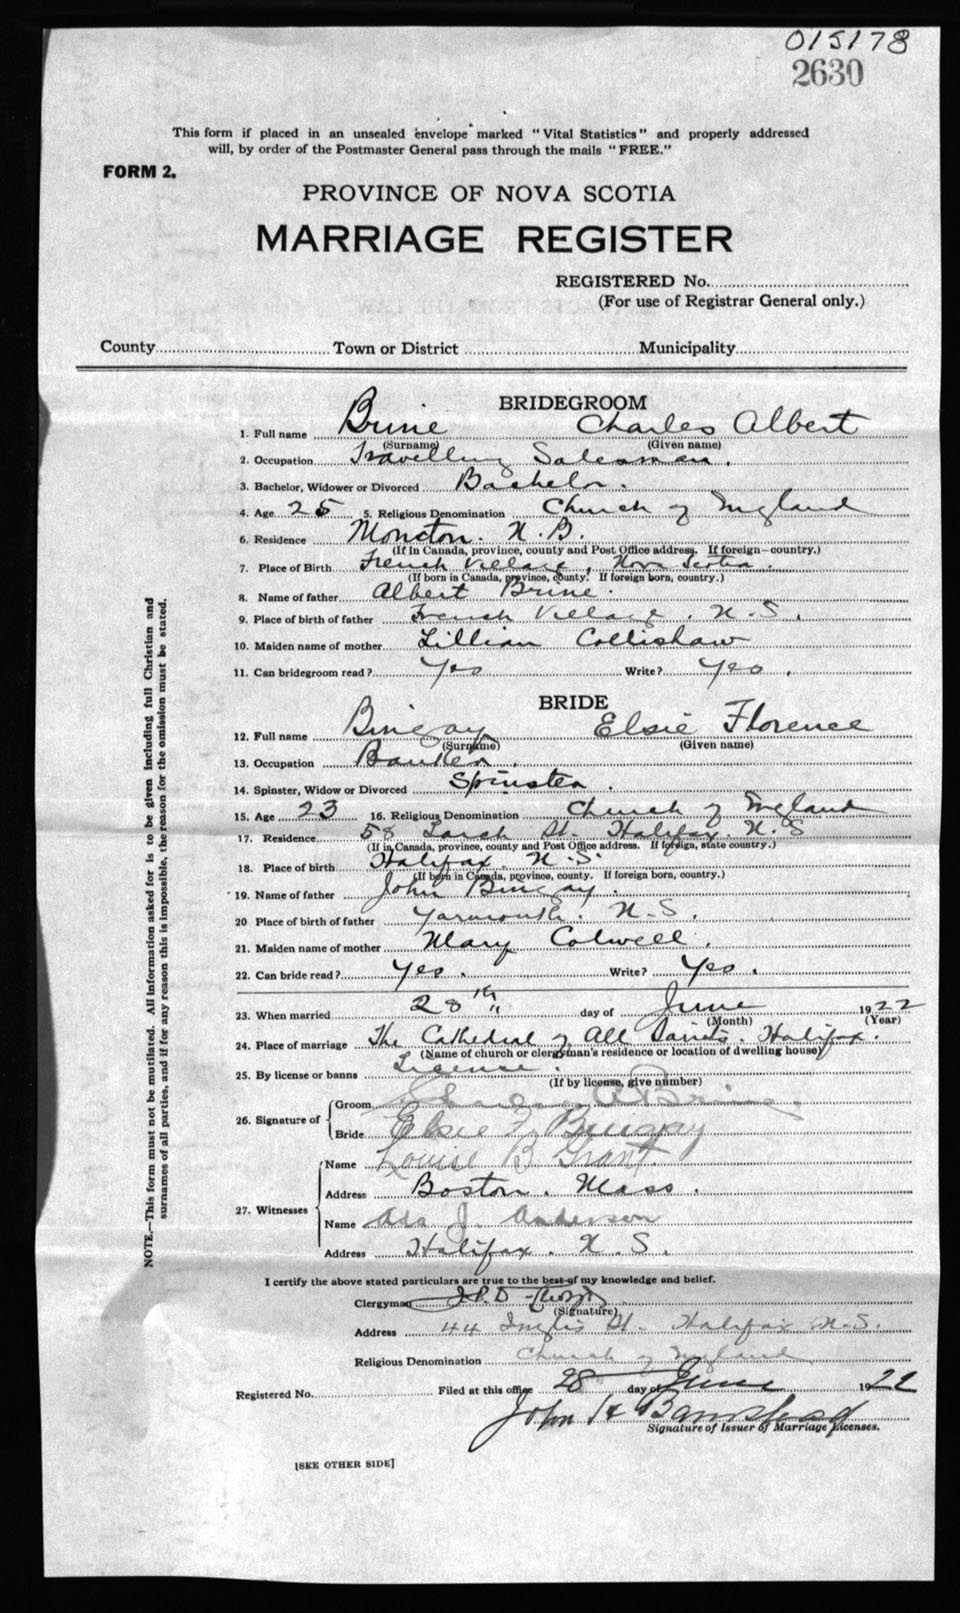 015178
2630
This form if placed in an unsealed envelope marked "Vital Statistics" and properly addressed
will, by order of the Postmaster General pass through the mails "FREE."
FORM 2.
PROVINCE OF NOVA SCOTIA
MARRIAGE REGISTER
REGISTERED No.
(For use of Registrar General only.)
County Town or District Municipality
BRIDEGROOM
1. Full name Brine Charles Albert
(Surname) (Given name)
2. Occupation Travelling Salesman.
3. Bachelor, Widower or Divorced Bachelor.
4. Age 25 5. Religious Denomination Church of England
6. Residence Moncton. N.B.
(If in Canada, province, county and Post Office address. If foreign—country.)
7. Place of Birth French Village, Nova Scotia.
(If born in Canada, province, county. If foreign born, country.)
8. Name of father Albert Brine.
9. Place of birth of father French Village. N.S.
10. Maiden name of mother Lillian Collishaw
11. Can bridegroom read? Yes Write? Yes.
BRIDE
12. Full name Bingay Elsie Florence
(Surname) (Given name)
13. Occupation Banker.
14. Spinster, Widow or Divorced Spinster.
15. Age 23 16. Religious Denomination Church of England
17. Residence 58 Larch St. Halifax. N.S
(If in Canada, province, county and Post Office address. If foreign, state country.)
18. Place of birth Halifax. N.S.
(If born in Canada, province, county. If foreign born, country.)
19. Name of father John Bingay.
20 Place of birth of father Yarmouth. N.S.
21. Maiden name of mother Mary Colwell.
22. Can bride read? Yes. Write? Yes.
23. When married 28th day of June 1922
(Month) (Year)
24. Place of marriage The Cathedral of All Saints. Halifax.
(Name of church or clergyman's residence or location of dwelling house)
25. By license or banns License.
(If by license, give number)
26. Signature of Groom Charles A Brine.
Bride Elsie F. Bingay
27. Witnesses Name Louise B Grant.
Address Boston. Mass.
Name Ada J. Anderson
Address Halifax. N.S.
I certify the above stated particulars are true to the best of my knowledge and belief.
Clergyman
(Signature)
Address 44 Inglis St. Halifax N.S.
Religious Denomination Church of England
Registered No. Filed at this office 28 day of June 1922
John H
Signature of Issuer of Marriage Licenses.
[SEE OTHER SIDE]
NOTE.—This form must not be mutilated. All information asked for is to be given including full Christian and
surnames of all parties, and if for any reason this is impossible, the reason for the omission must be stated.